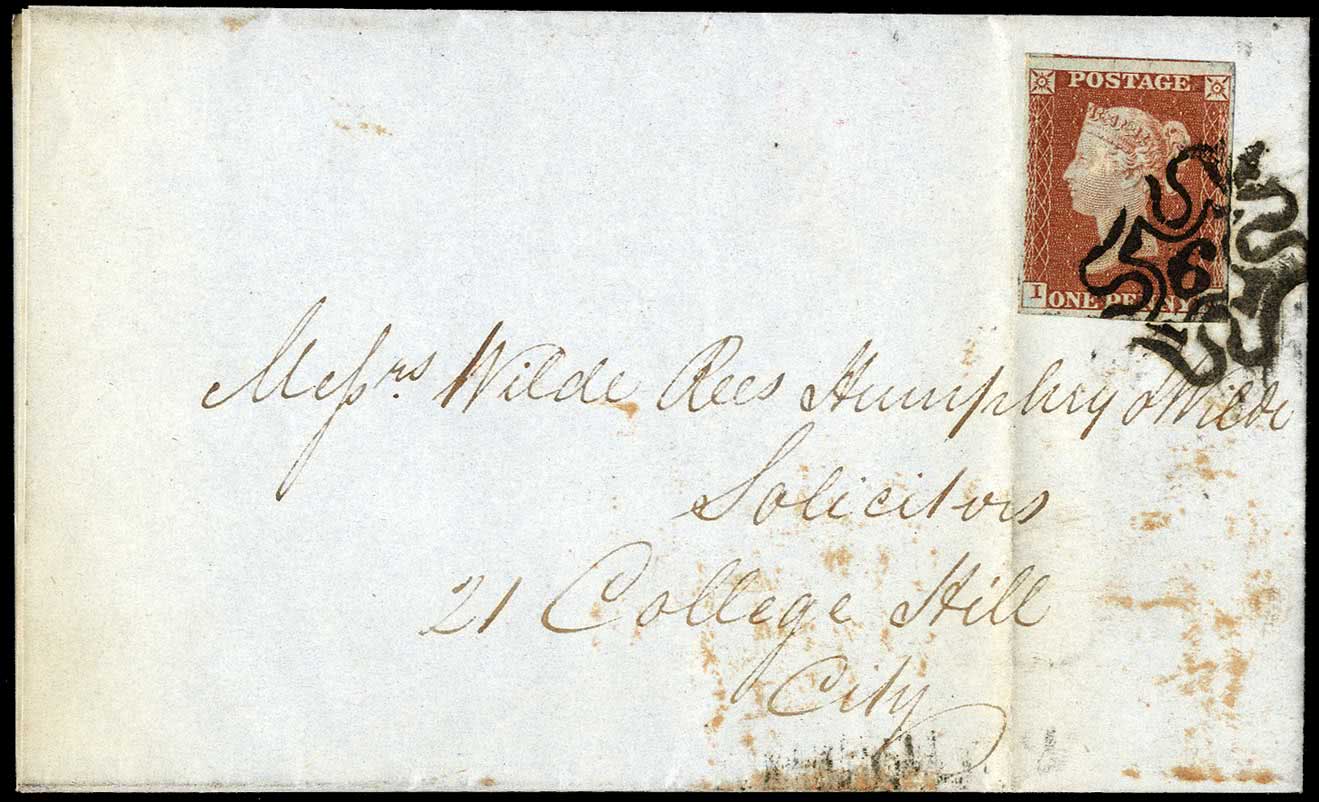 POSTAGE
I ONE PENNY
6
Messrs. Wilde Rees Humphry & Wilde
Solicitors
21 College Hill
City